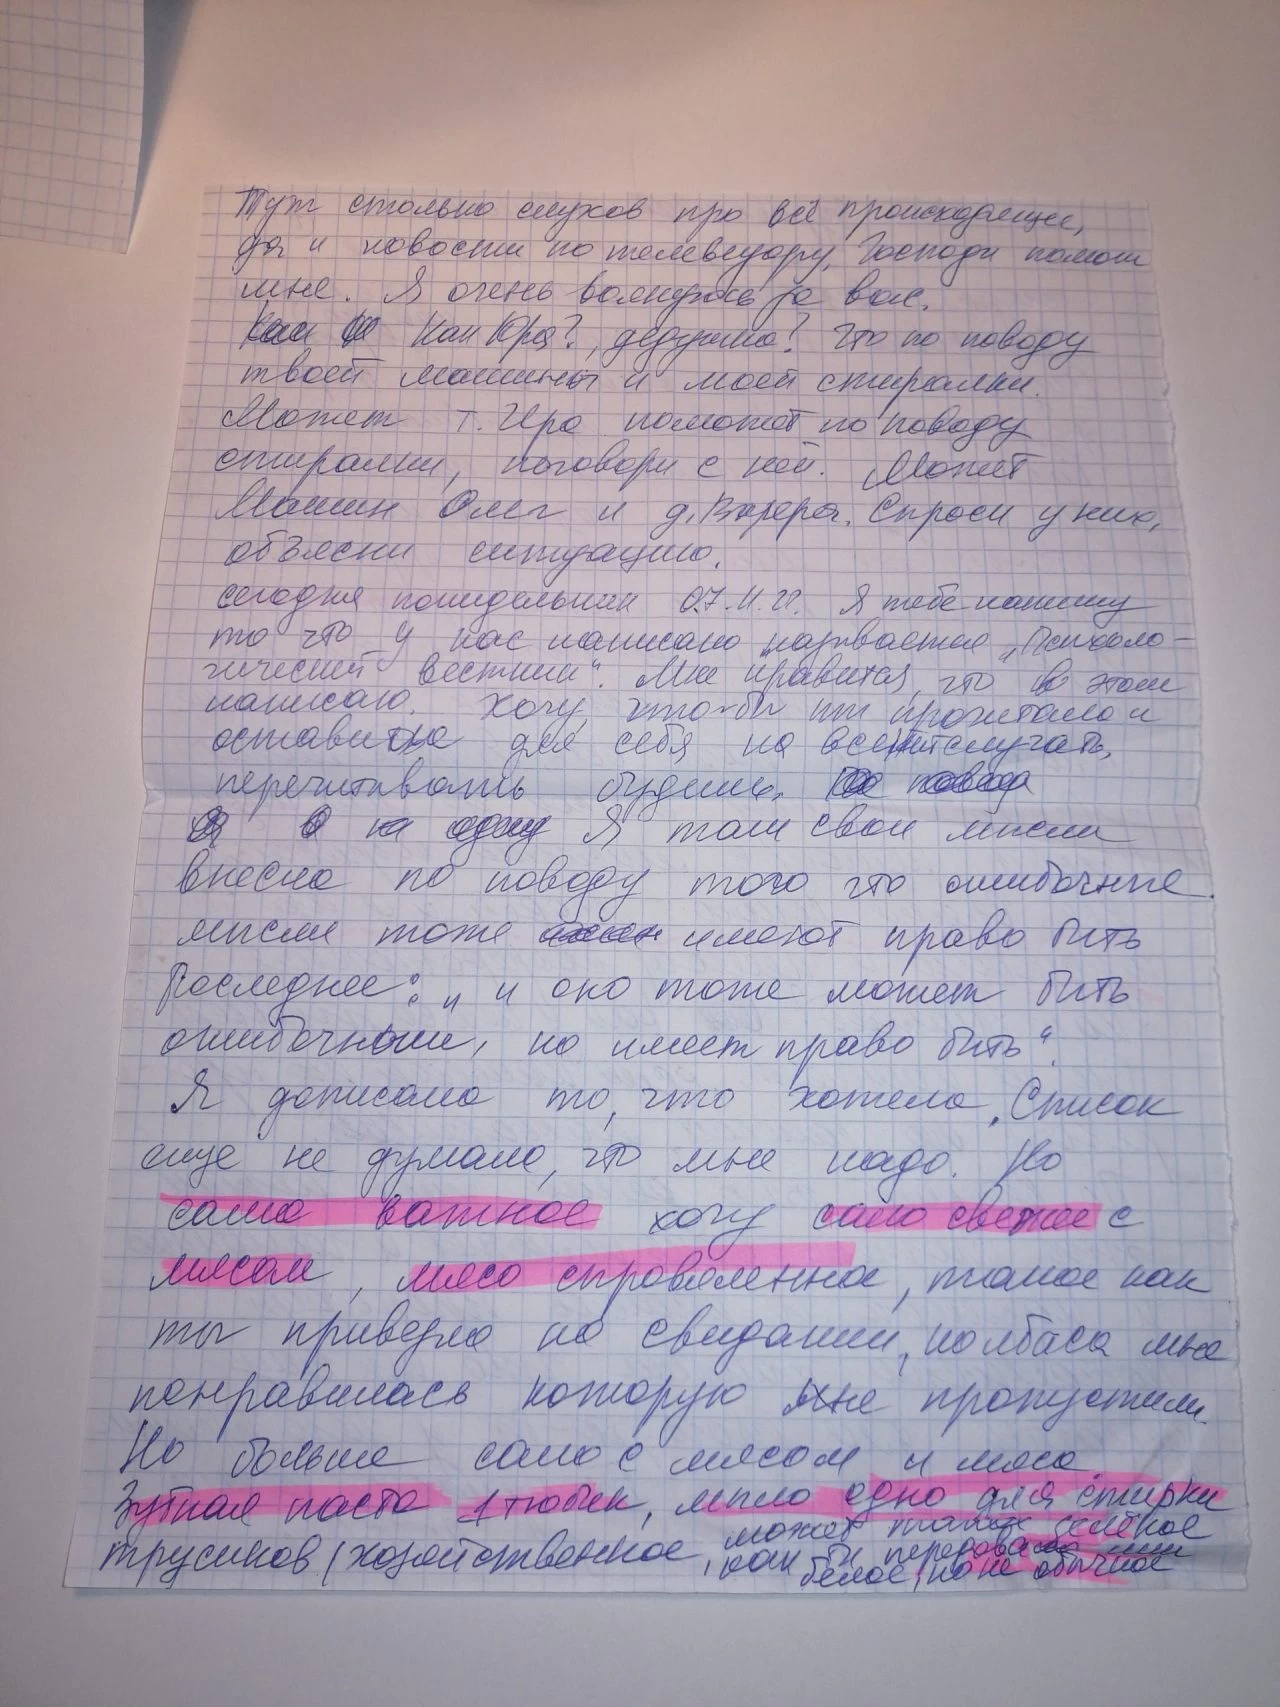 Тут столько слухов про всё происходящее,
да и новости по телевизору, Господи помоги
мне. Я очень волнуюсь за вас.
Как Юра?, дедушка? Что по поводу
твоей машины и моей стиралки.
Может т. Ира поможет по поводу
стиралки, поговори с ней. Может
Машин Олег и д. Валера. Спроси у них,
объясни ситуацию.
сегодня понидельник 07.11.22. Я тебе напишу
то что у нас написано называется „Психоло-
гический вестник“. Мне нравится, что в этом
написано. Хочу, что-бы ты прочитала и
оставила для себя на всякий случай,
перечитывать будешь. По повода
Я в на одну Я там свои мысли
внесла по поводу того что ошибочные
мысли тоже имеют право быть
Последнее: „и оно тоже может быть
ошибочным, но имеет право быть“.
Я дописала то, что хотела. Список
еще не думала, что мне надо. Но
само важное хочу сало свежее с
мясом, мясо справяленное, такое как
ты привезла на свидании, колбаса мне
понравилась которую не пропустили.
Но больше сало с мясом и мясо
Зубная паста 1 тюбик, мыло одно для стирки
трусиков (хозяйственное, может такое зелёное
как вы передовали или
белое, но не обычное